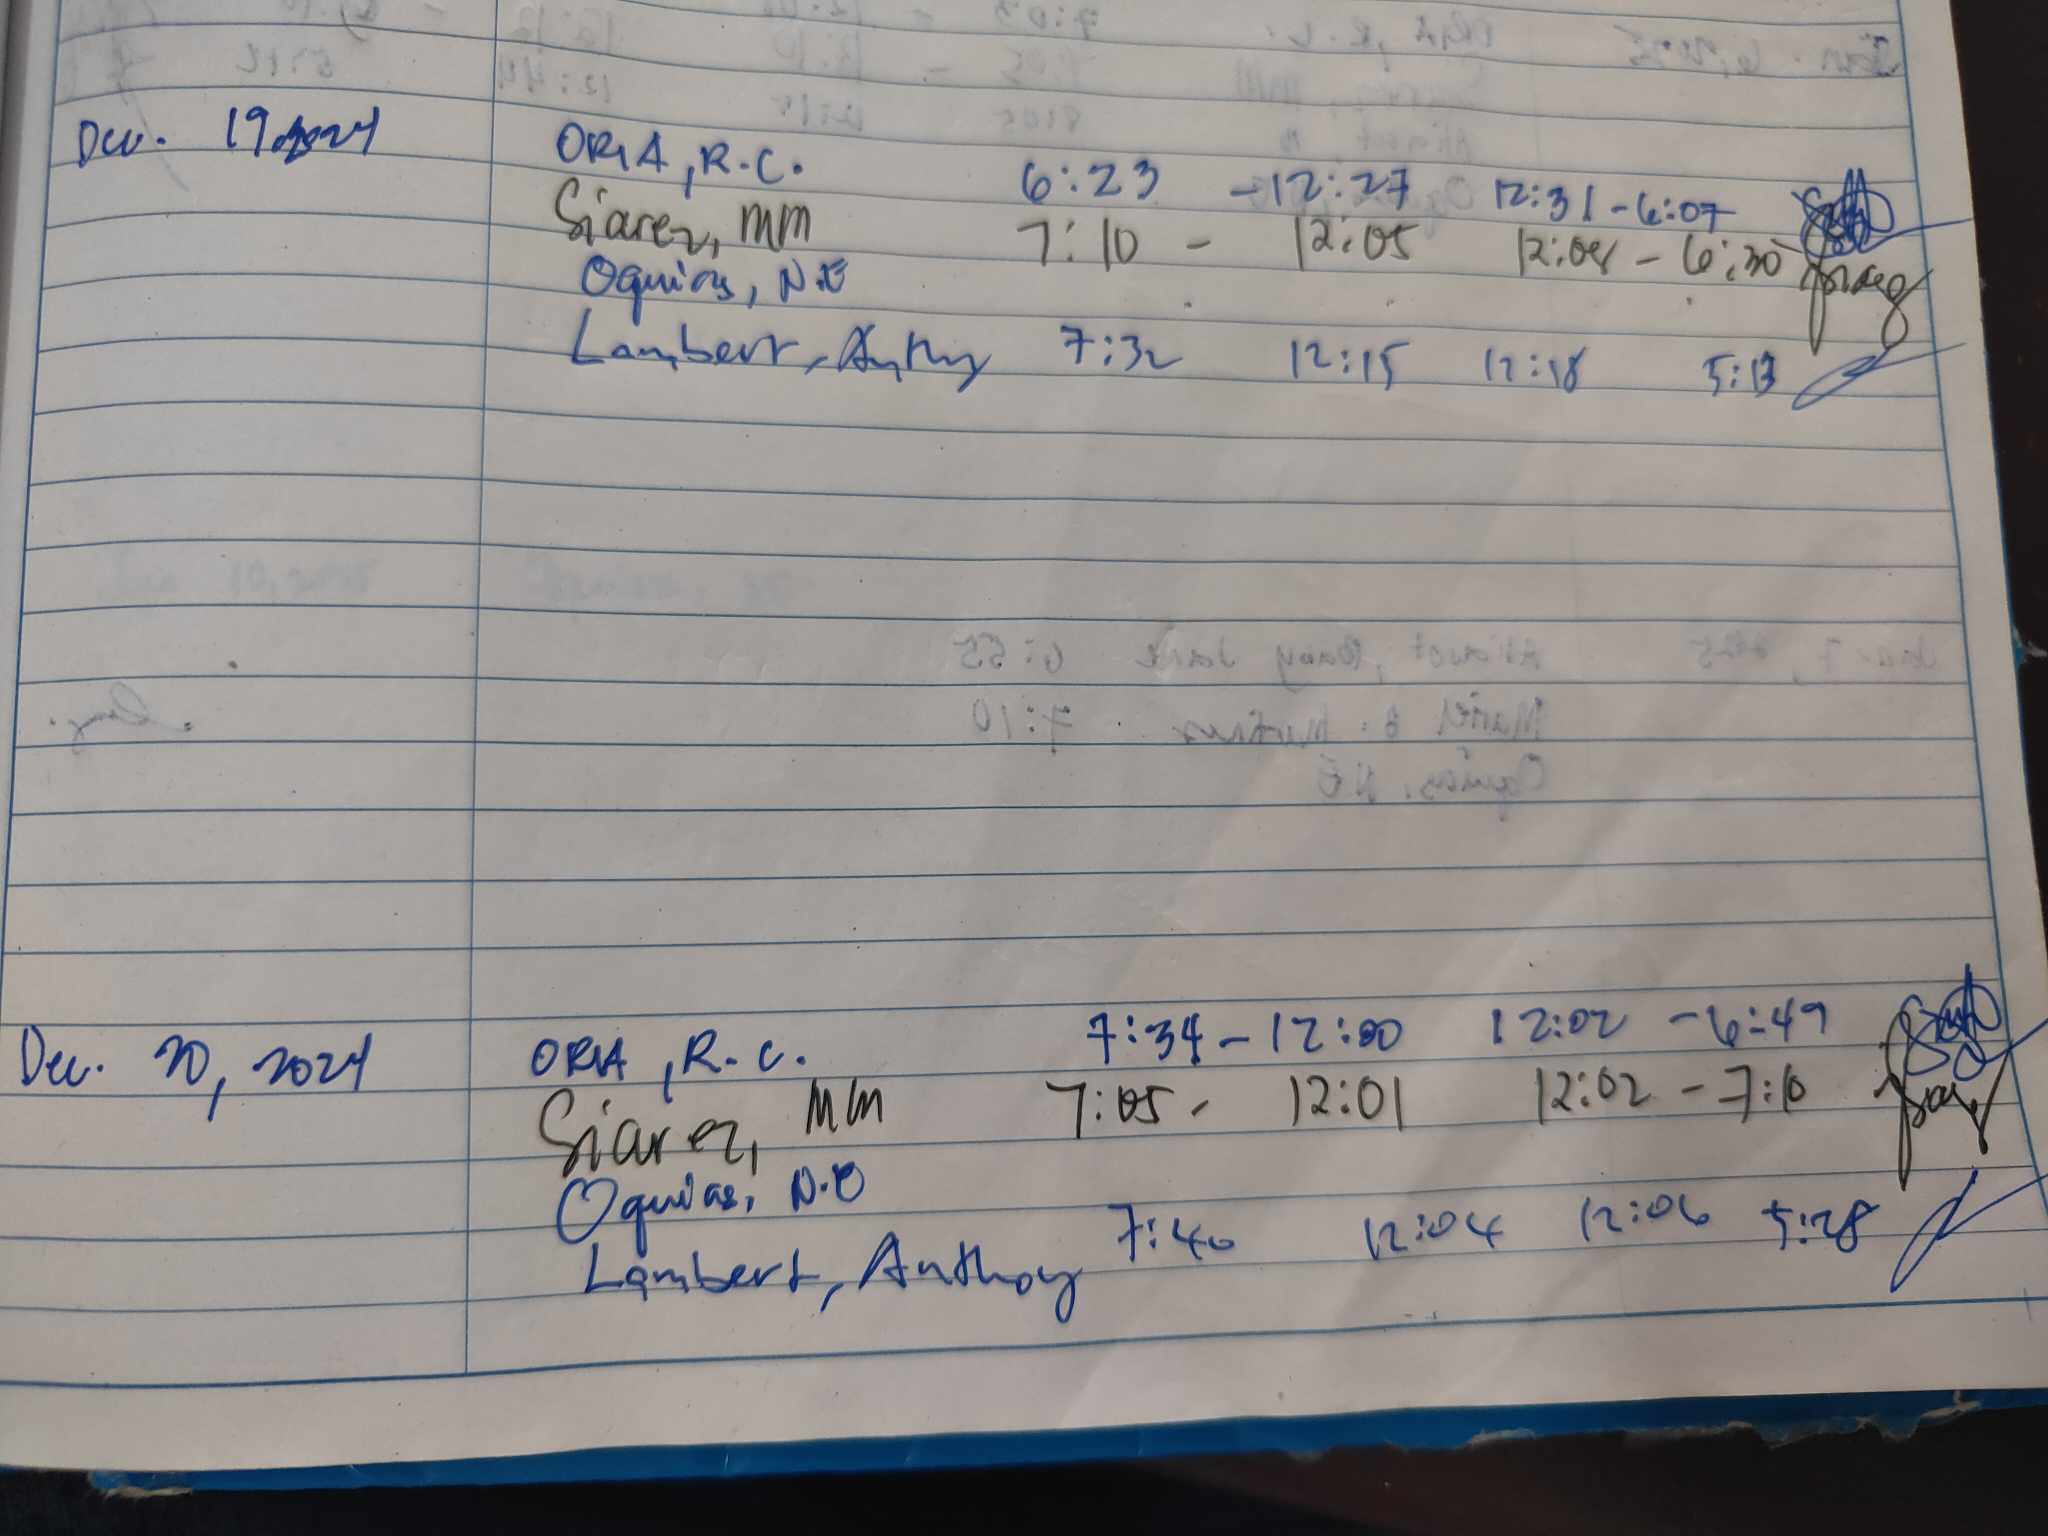 Dec. 19, 2024 ORIA, R.C. 6:23 - 12:27 12:31 - 6:07
Siarez, MM 7:10 - 12:05 12:08 - 6:30
Oquias, N.E
Lambert, Anthy 7:32 12:15 12:18 5:13
Dec. 20, 2024 ORIA, R.C. 7:34 - 12:00 12:02 - 6:49
Siarez, MM 7:05 - 12:01 12:02 - 7:10
Oquias, N.E
Lambert, Anthoy 7:40 12:04 12:06 5:28